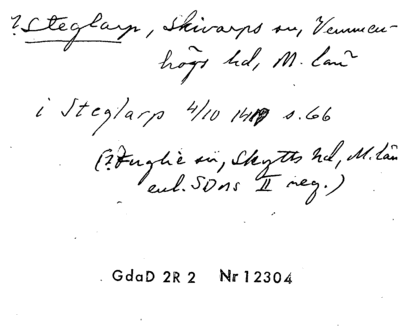 ?Steglarp, Skivarps sn, Vemmen-
högs hd, M. län
i Steglarp 4/10 1419 s. 66
(?Fuglie sn, Skytts hd, M. län
enl. SDns II reg.)
GdaD 2R 2 Nr 12304